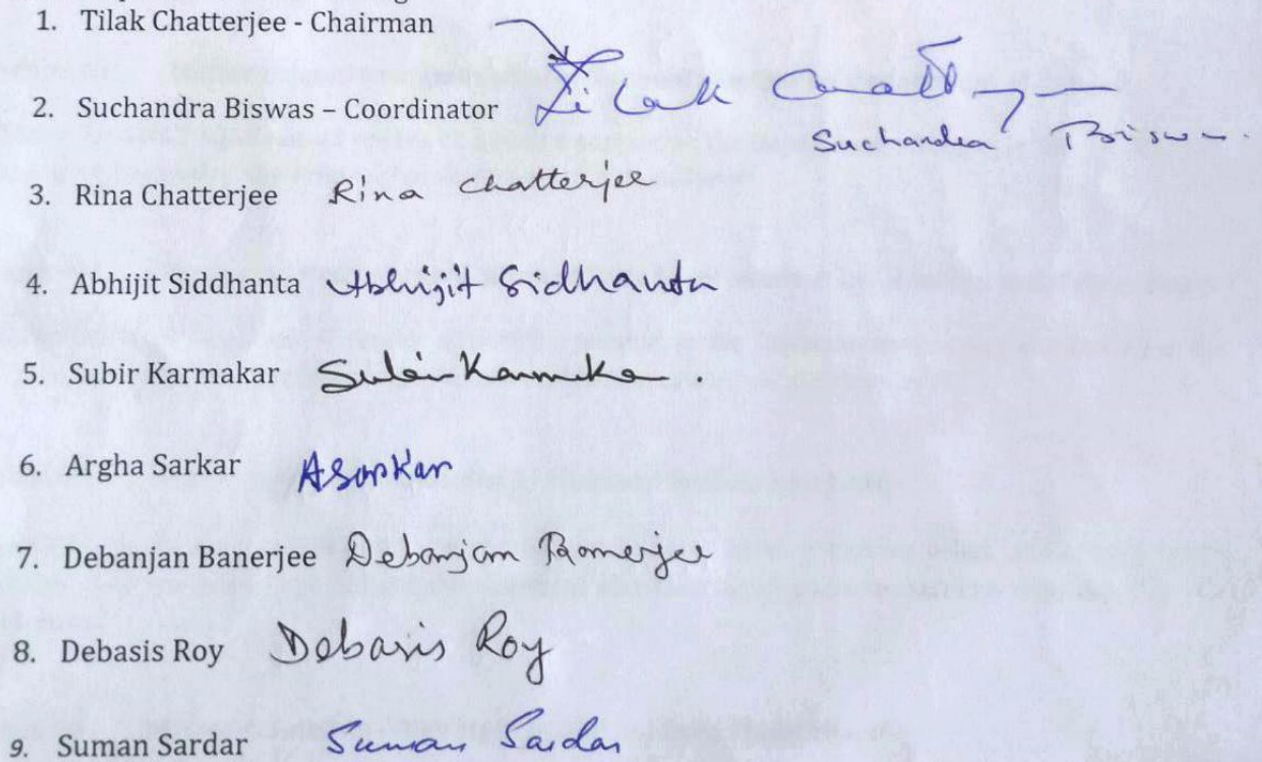 1. Tilak Chatterjee - Chairman
Tilak Chatterjee
2. Suchandra Biswas – Coordinator
Suchandra Biswas
3. Rina Chatterjee Rina Chatterjee
4. Abhijit Siddhanta Abhijit Sidhanta
5. Subir Karmakar Subir Karmakar
6. Argha Sarkar ASarkar
7. Debanjan Banerjee Debanjan Banerjee
8. Debasis Roy Debasis Roy
9. Suman Sardar Suman Sardar